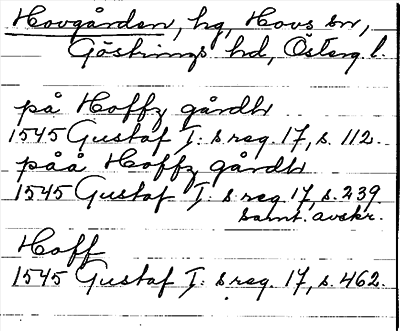 Hovgården, hg, Hovs sn,
Göstrings hd, Österg. l.
på Hoffz gårdh
1545 Gustaf I: s reg. 17, s. 112.
påå Hoffz gårdh
1545 Gustaf I: s reg. 17, s. 239
samt. avskr.
Hoff
1545 Gustaf I: s reg. 17, s. 462.